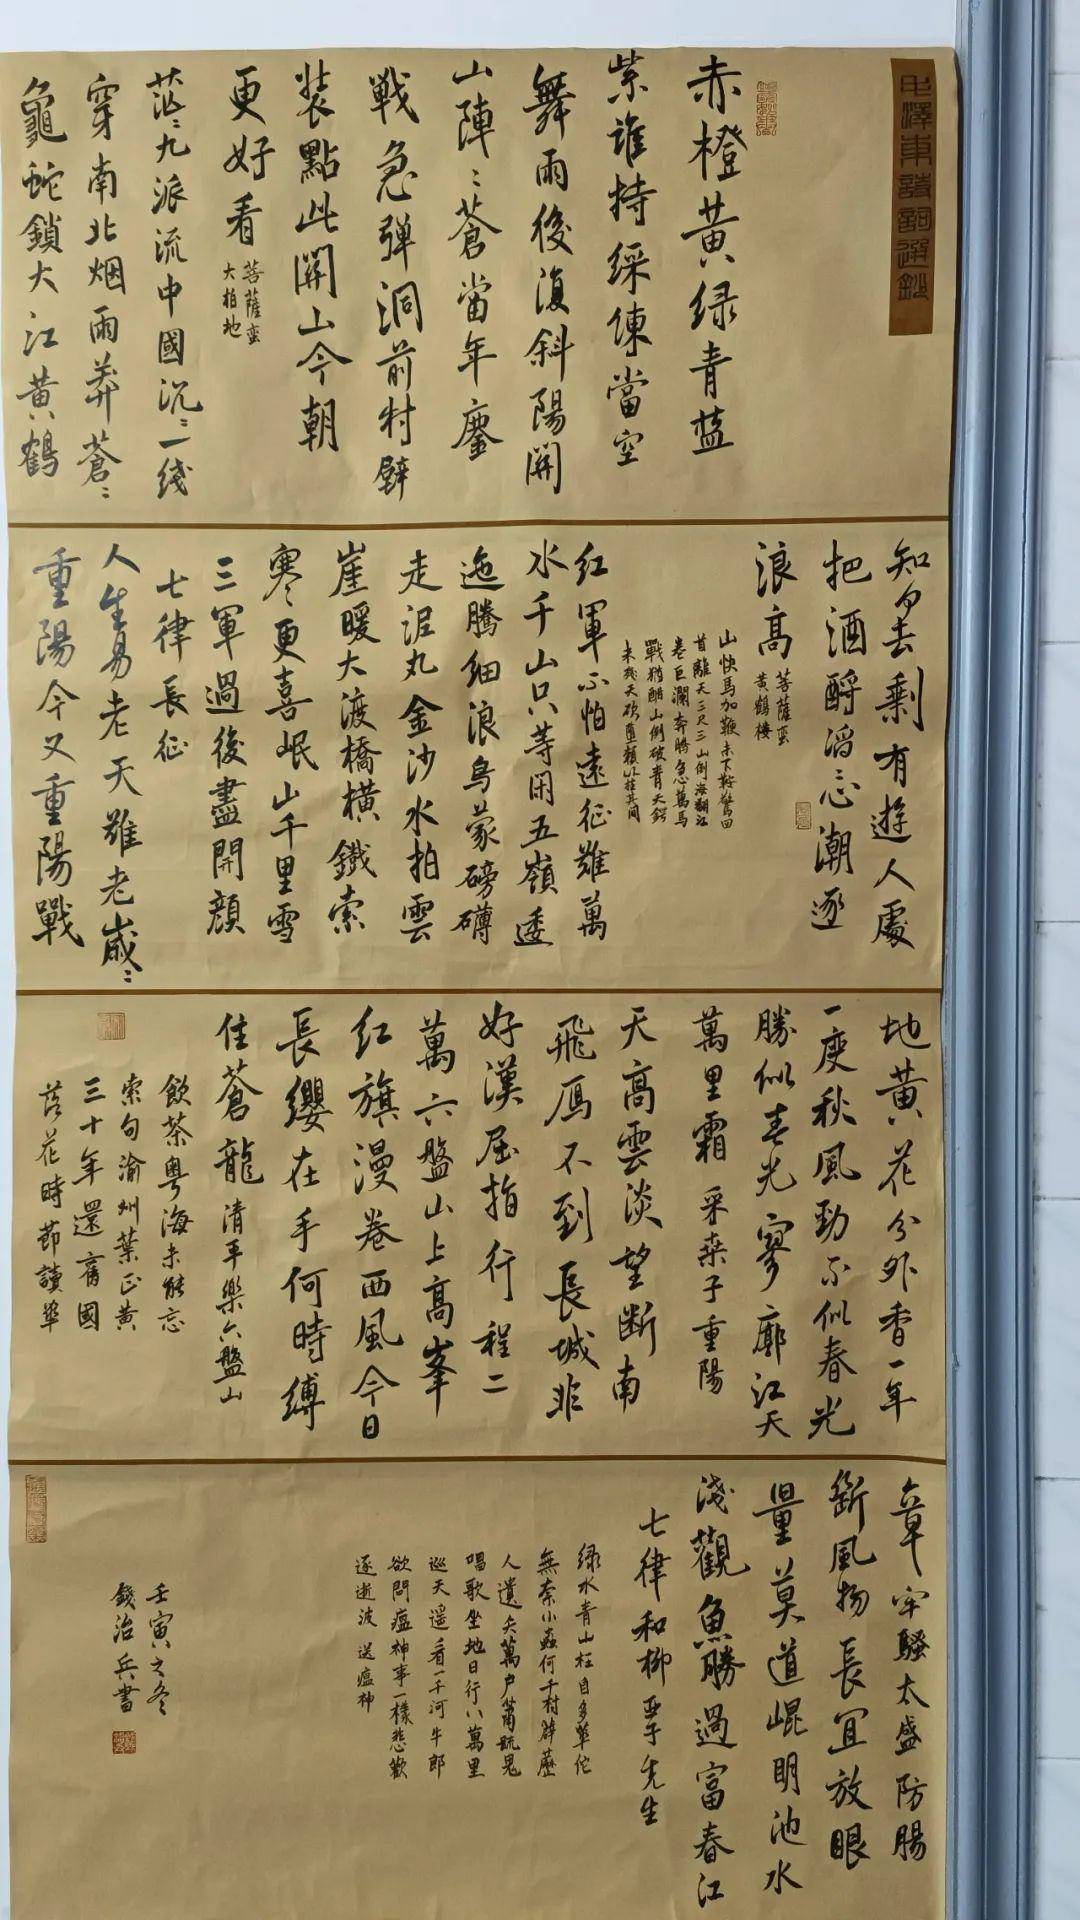 毛澤東詩詞選鈔
赤橙黄绿青蓝
紫谁持綵练當空
舞雨後復斜陽関
山陣〻蒼當年鏖
戰急弹洞前村壁
装點此関山今朝
更好看
菩薩蛮
大柏地
茫〻九派流中國沉〻一线
穿南北烟雨莽蒼〻
龜蛇鎖大江黄鶴
知何去剩有遊人處
把酒酹滔〻心潮逐
浪高
菩薩蛮
黄鶴樓
山快馬加鞭未下鞍驚回
首離天三尺三山倒海翻江
卷巨瀾奔騰急萬馬
戰猶酣山刺破青天鍔
未残天欲堕賴以拄其间
红軍不怕遠征難萬
水千山只等闲五嶺逶
迤騰细浪烏蒙磅礴
走泥丸金沙水拍雲
崖暖大渡橋横鐵索
寒更喜岷山千里雪
三軍過後盡開顔
七律長征
人生易老天難老歲〻
重陽今又重陽戰
地黄花分外香一年
一度秋風勁不似春光
勝似春光寥廓江天
萬里霜 采桑子重陽
天高雲淡望断南
飛雁不到長城非
好漢屈指行程二
萬六盤山上高峯
红旗漫卷西風今日
長缨在手何時縛
住蒼龍 清平樂六盤山
飲茶粤海未能忘
索句渝州葉正黄
三十年還舊國
落花時節讀華
章牢騷太盛防腸
斷風物長宜放眼
量莫道崐明池水
浅觀魚勝過富春江
七律和柳亞子先生
绿水青山枉自多華佗
無奈小蟲何千村薜藶
人遺矢萬户蕭疏鬼
唱歌坐地日行八萬里
巡天遥看一千河牛郎
欲問瘟神事一樣悲歡
逐逝波 送瘟神
壬寅之冬
錢治兵書